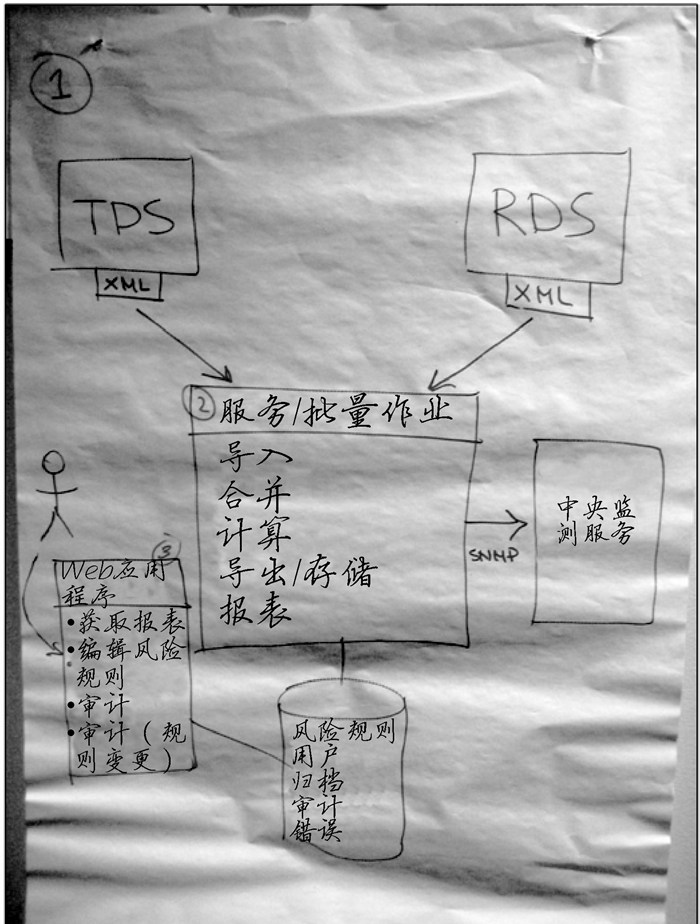 1
TDS
XML
RDS
XML
2
服务/批量作业
导入
合并
计算
导出/存储
报表
SNMP
中央监
测服务
3
Web应用
程序
•获取报表
•编辑风险
规则
•审计
•审计（规
则变更）
风险规则
用户
归档
审计
错误